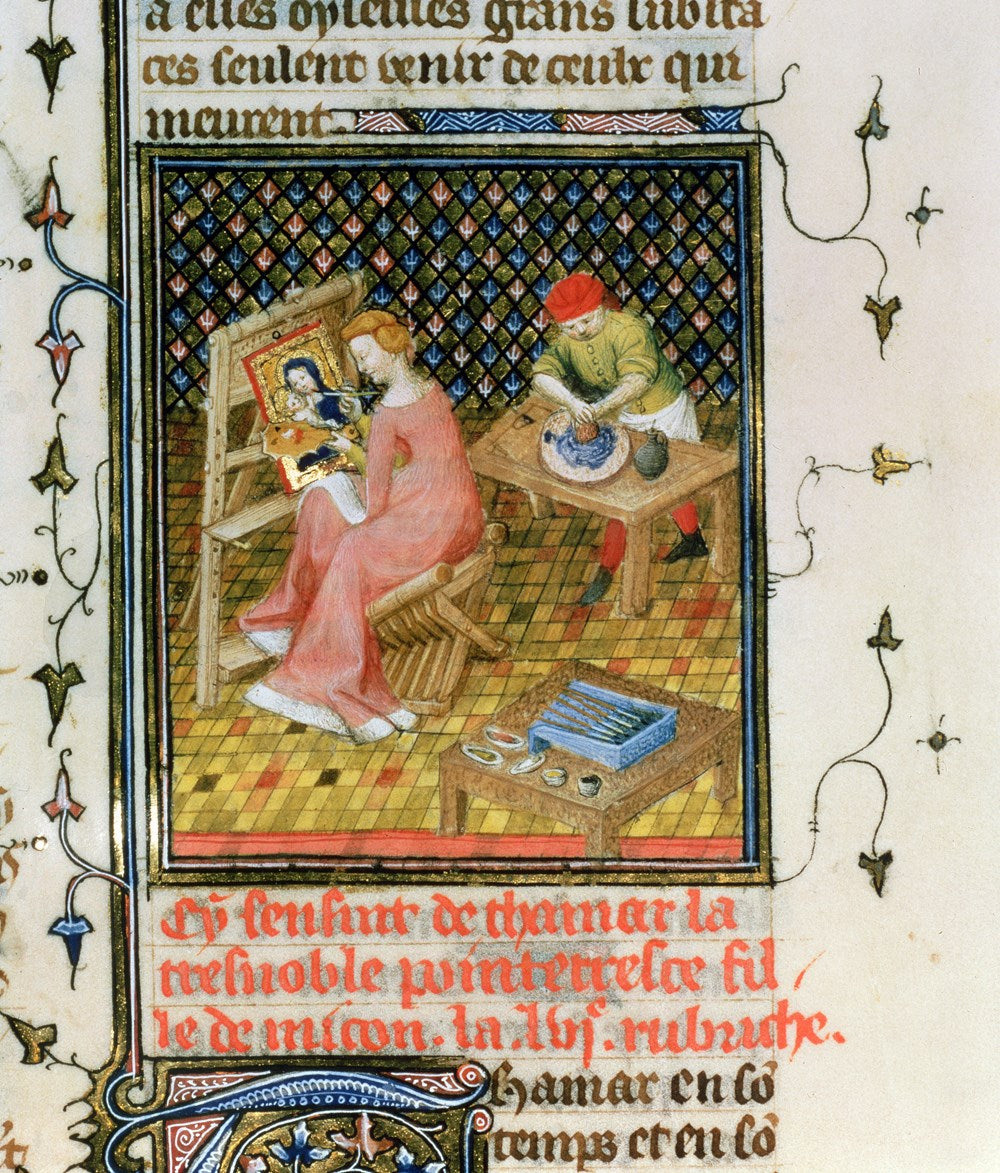 a elles oyseuses grans lubita
ces seulent venir de ceulx qui
meurent.
Cy sensuit de thamar la
tresnoble pointerresce fil
le de micon. la. lvi^e. rubriche.
Thamar en so͂
temps et en so͂